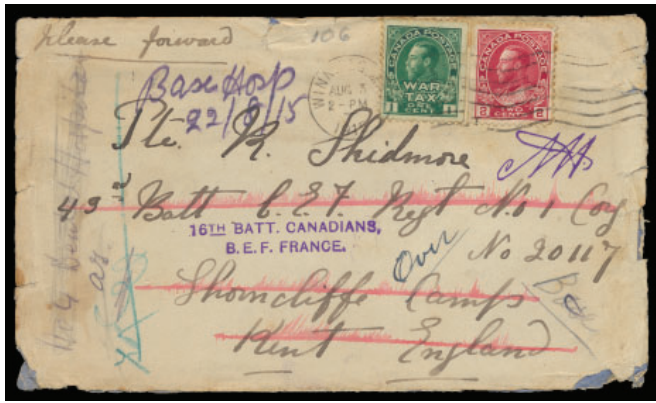 Please forward
106
CANADA POSTAGE
WAR
TAX
ONE
CENT
1 1
CANADA POSTAGE
2 CENTS 2
AUG
2 - PM
Base Hosp
22/8/15
Pte. R. Skidmore
43rd Batt C.E.F. Regt No 1 Coy
16TH BATT. CANADIANS,
B.E.F. FRANCE.
Over
No 20117
Shorncliffe Camps
Kent England